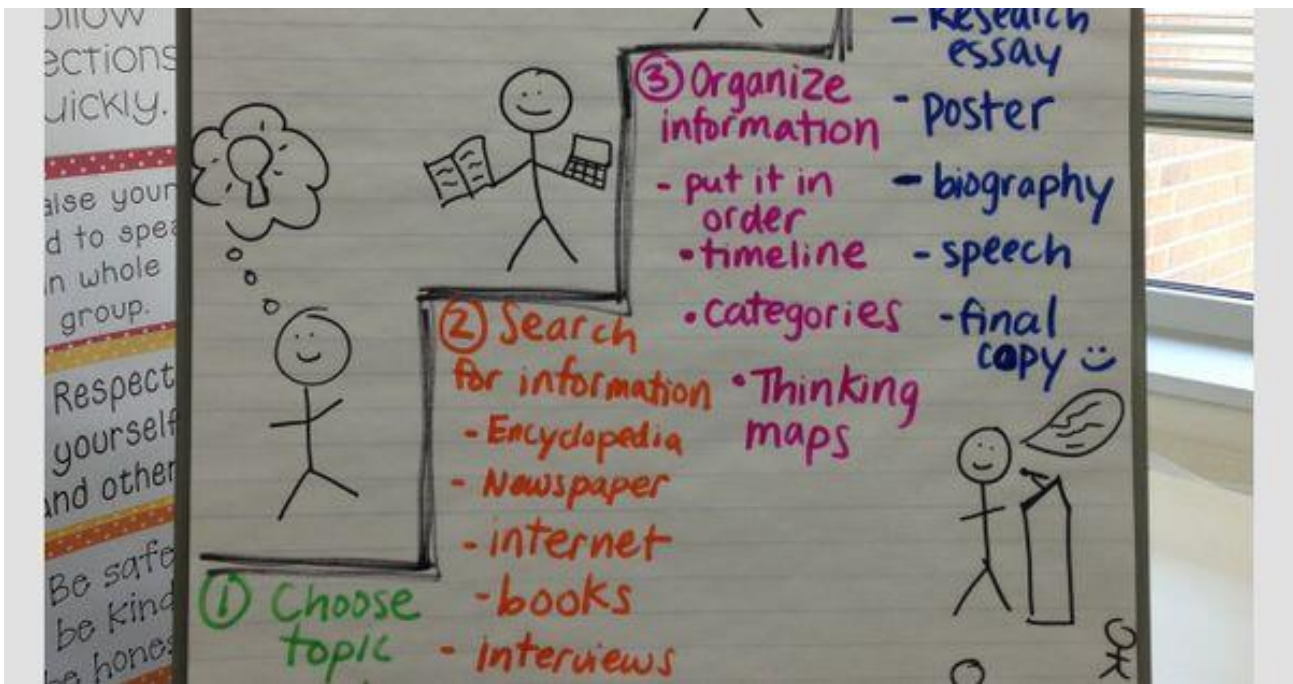 ections
uickly.
your
d to
n whole
group.
Respect
yourself
and other
Be safe
be kind
be hones
① Choose
topic
② Search
for information
- Encyclopedia
- Newspaper
- internet
- books
- interviews
③ Organize
information
- put it in
order
• timeline
• categories
• Thinking
maps
- Research
essay
- poster
- biography
- speech
- final
copy